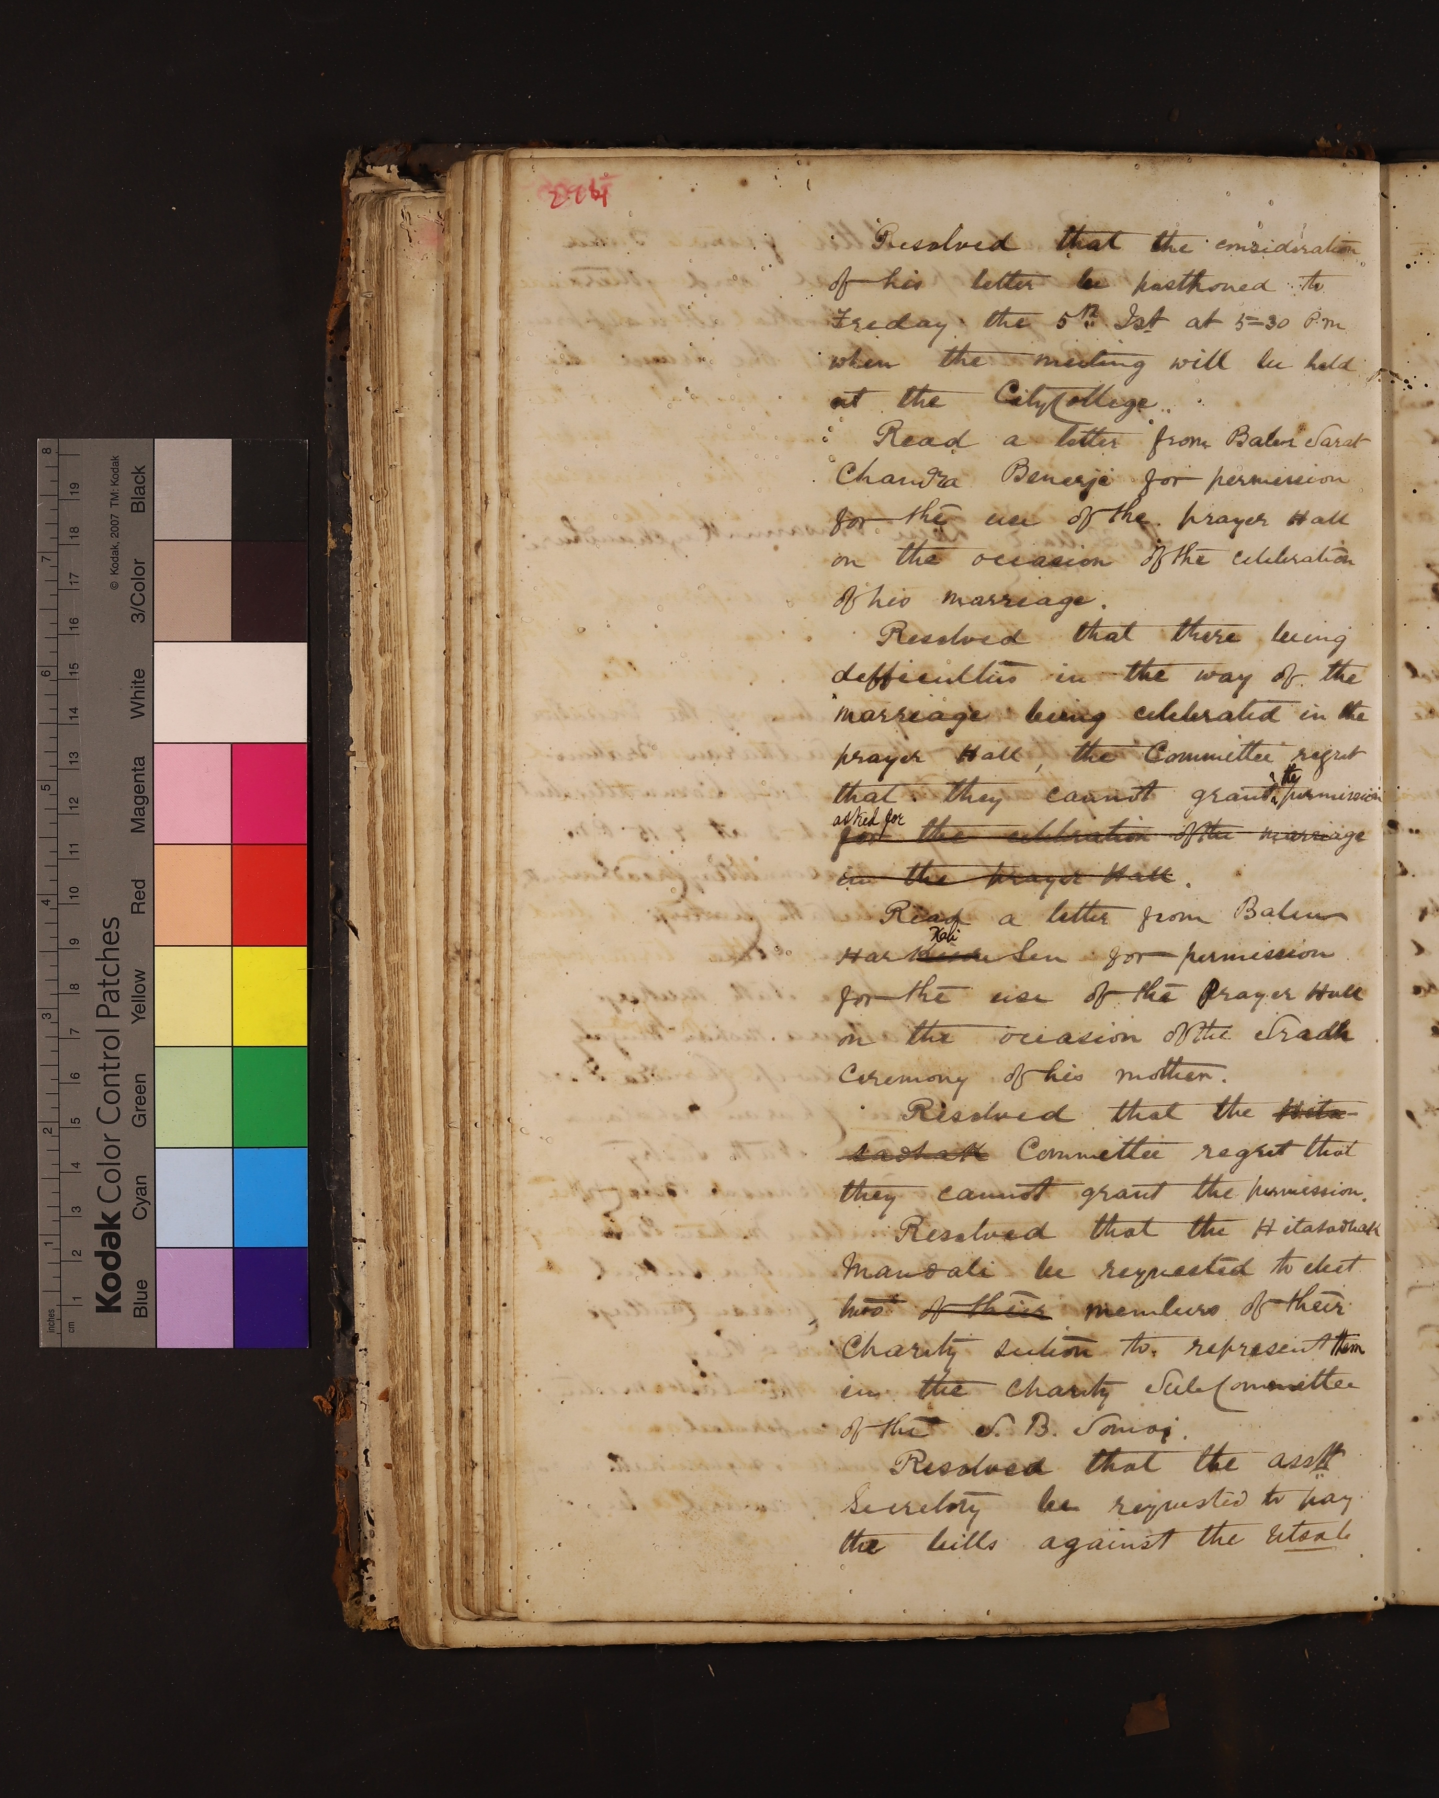 Resolved that the consideration
of his letter be posthoned to
Freday the 5th Ist at 5=30 P.m
when the meeting will be held
at the City College.
Read a letter from Babu Sarat
Chandra Benerji for permission
for the use of the prayer Hall
on the occasion of the celebration
of his marriage.
Resolved that there being
defficulties in the way of the
marriage being celebrated in the
prayer Hall, the Committee regret
that they cannot grant the permission
asked for
for the celebration of the marriage
in the prayer Hall.
Read a letter from Babu
Kali
Har Sen for permission
for the use of the Prayer Hall
on the occasion of the Sradh
Ceremony of his mother.
Resolved that the Hita-
sadhak Committee regret that
they cannot grant the permission.
Resolved that the Hitasadhak
Mandali be requested to elect
two of their members of their
Charity section to represent them
in the Charity Sub Committee
of the S. B. Somaj.
Resolved that the asstt
Secretory be requested to pay
the bills against the Utsab
Kodak Color Control Patches
© Kodak, 2007 TM: Kodak
Blue Cyan Green Yellow Red Magenta White 3/Color Black
inches 1 2 3 4 5 6 7 8
cm 1 2 3 4 5 6 7 8 9 10 11 12 13 14 15 16 17 18 19